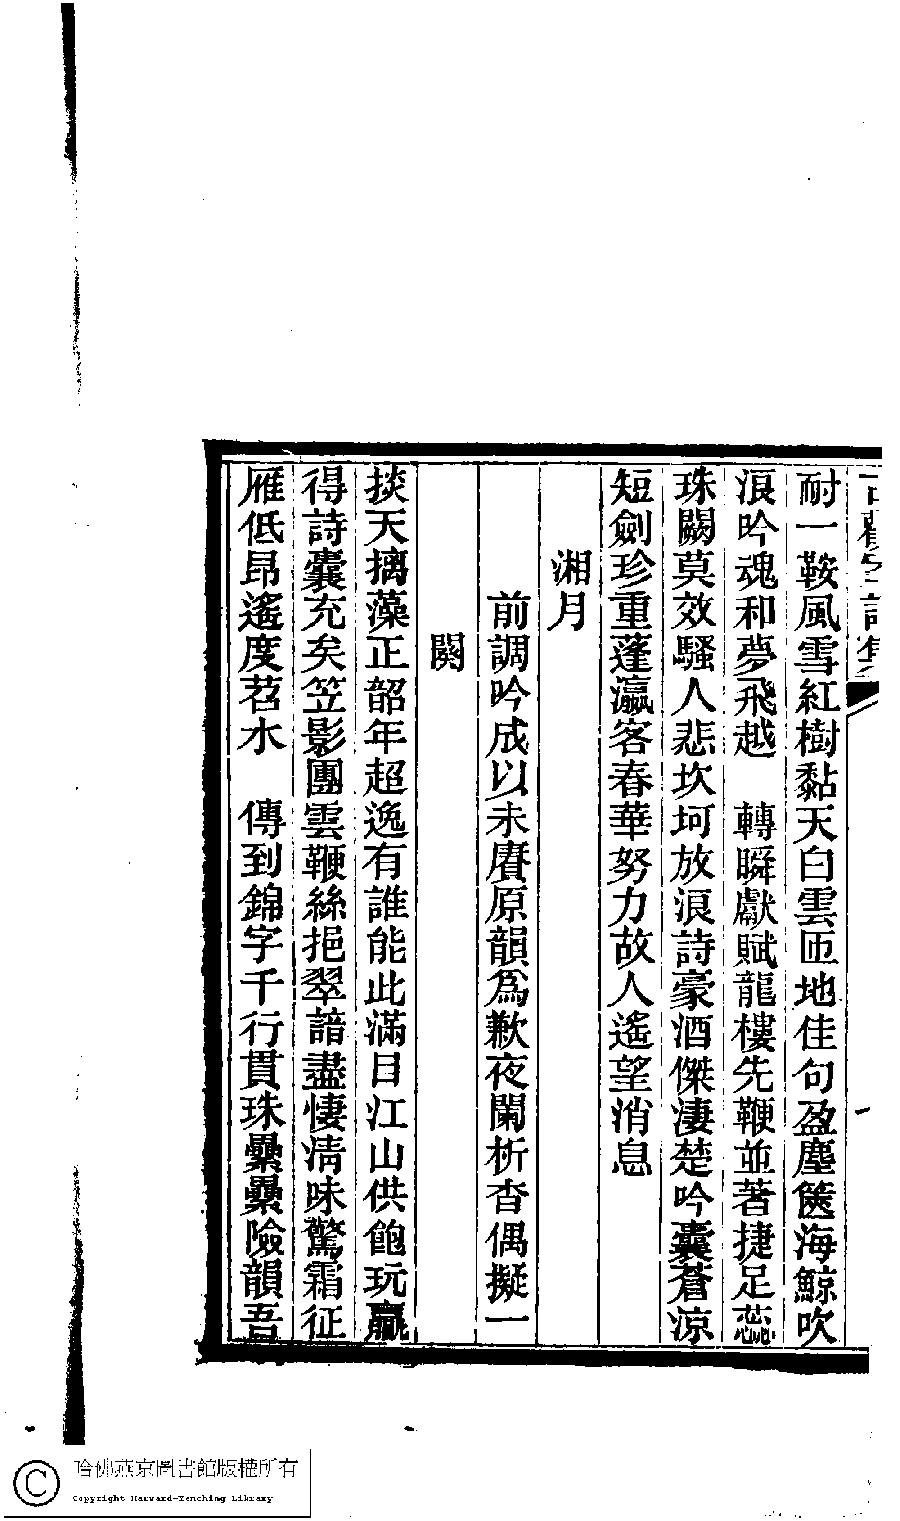 耐一鞍風雪紅樹黏天白雲匝地佳句盈塵篋海鯨吹
浪吟魂和夢飛越　轉瞬獻賦龍樓先鞭並著捷足蕊
珠闕莫效騷人悲坎坷放浪詩豪酒傑淒楚吟囊蒼涼
短劍珍重蓬瀛客春華努力故人遙望消息
湘月
前調吟成以未賡原韻爲歉夜闌析杳偶擬一
闋
掞天摛藻正韶年超逸有誰能此滿目江山供飽玩贏
得詩囊充矣笠影團雲鞭絲挹翠諳盡悽清味驚霜征
雁低昂遙度苕水　傳到錦字千行貫珠纍纍險韻吾
哈佛燕京圖書館版權所有
Copyright Harvard-Yenching Library